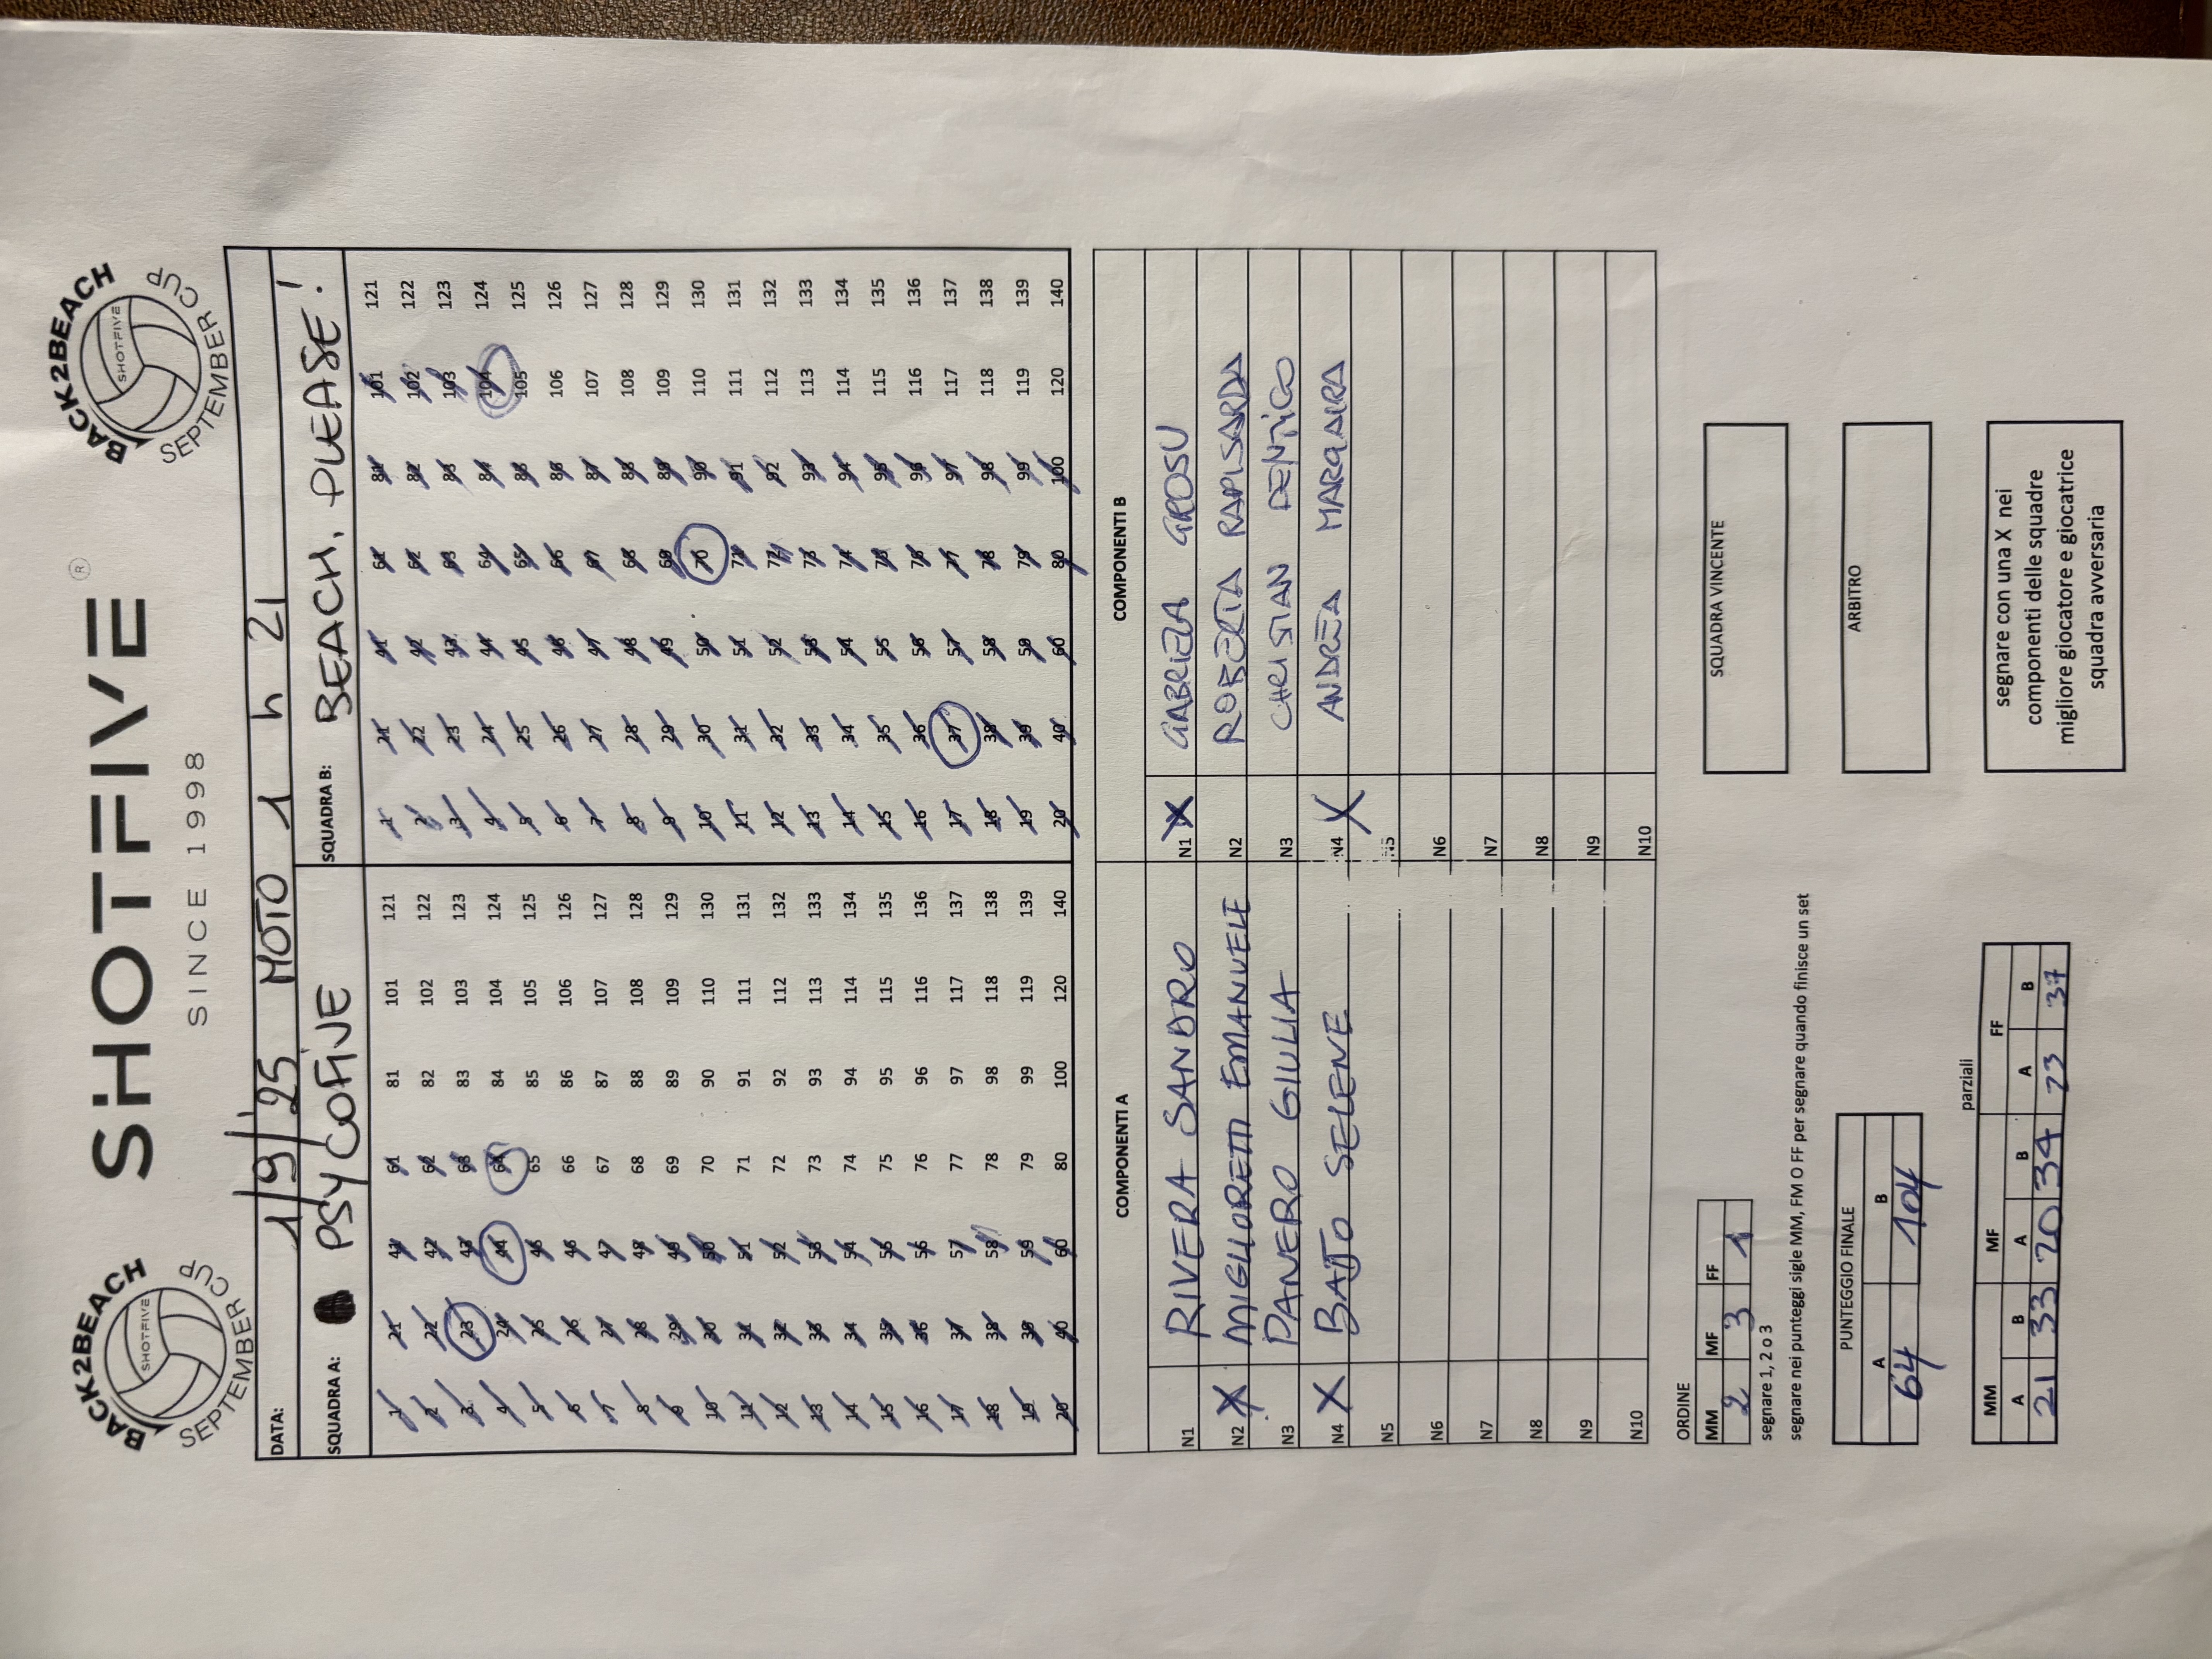 BACK2BEACH
SHOTFIVE
SEPTEMBER CUP
SHOTFIVE ®
SINCE 1998
BACK2BEACH
SHOTFIVE
SEPTEMBER CUP
DATA: 1/9/25 MOTO 1 h 21
SQUADRA A: PSYCOFIVE
SQUADRA B: BEACH, PLEASE!
1 21 41 61 81 101 121 1 21 41 61 81 101 121
2 22 42 62 82 102 122 2 22 42 62 82 102 122
3 23 43 63 83 103 123 3 23 43 63 83 103 123
4 24 44 64 84 104 124 4 24 44 64 84 104 124
5 25 45 65 85 105 125 5 25 45 65 85 105 125
6 26 46 66 86 106 126 6 26 46 66 86 106 126
7 27 47 67 87 107 127 7 27 47 67 87 107 127
8 28 48 68 88 108 128 8 28 48 68 88 108 128
9 29 49 69 89 109 129 9 29 49 69 89 109 129
10 30 50 70 90 110 130 10 30 50 70 90 110 130
11 31 51 71 91 111 131 11 31 51 71 91 111 131
12 32 52 72 92 112 132 12 32 52 72 92 112 132
13 33 53 73 93 113 133 13 33 53 73 93 113 133
14 34 54 74 94 114 134 14 34 54 74 94 114 134
15 35 55 75 95 115 135 15 35 55 75 95 115 135
16 36 56 76 96 116 136 16 36 56 76 96 116 136
17 37 57 77 97 117 137 17 37 57 77 97 117 137
18 38 58 78 98 118 138 18 38 58 78 98 118 138
19 39 59 79 99 119 139 19 39 59 79 99 119 139
20 40 60 80 100 120 140 20 40 60 80 100 120 140
COMPONENTI A COMPONENTI B
N1 RIVERA SANDRO N1 X GABRIELA GROSU
N2 X MIGLIORETTI EMANUELE N2 ROBERTA RAPISARDA
N3 PANERO GIULIA N3 CHRISTIAN DENTICO
N4 X BAJTO SELENE N4 X ANDREA MARGAIRA
N5 N5
N6 N6
N7 N7
N8 N8
N9 N9
N10 N10
ORDINE
MM MF FF
2 3 1
segnare 1, 2 o 3
segnare nei punteggi sigle MM, FM O FF per segnare quando finisce un set
SQUADRA VINCENTE
PUNTEGGIO FINALE
A B
64 104
ARBITRO
parziali
MM MF FF
A B A B A B
21 33 20 34 23 37
segnare con una X nei
componenti delle squadre
migliore giocatore e giocatrice
squadra avversaria